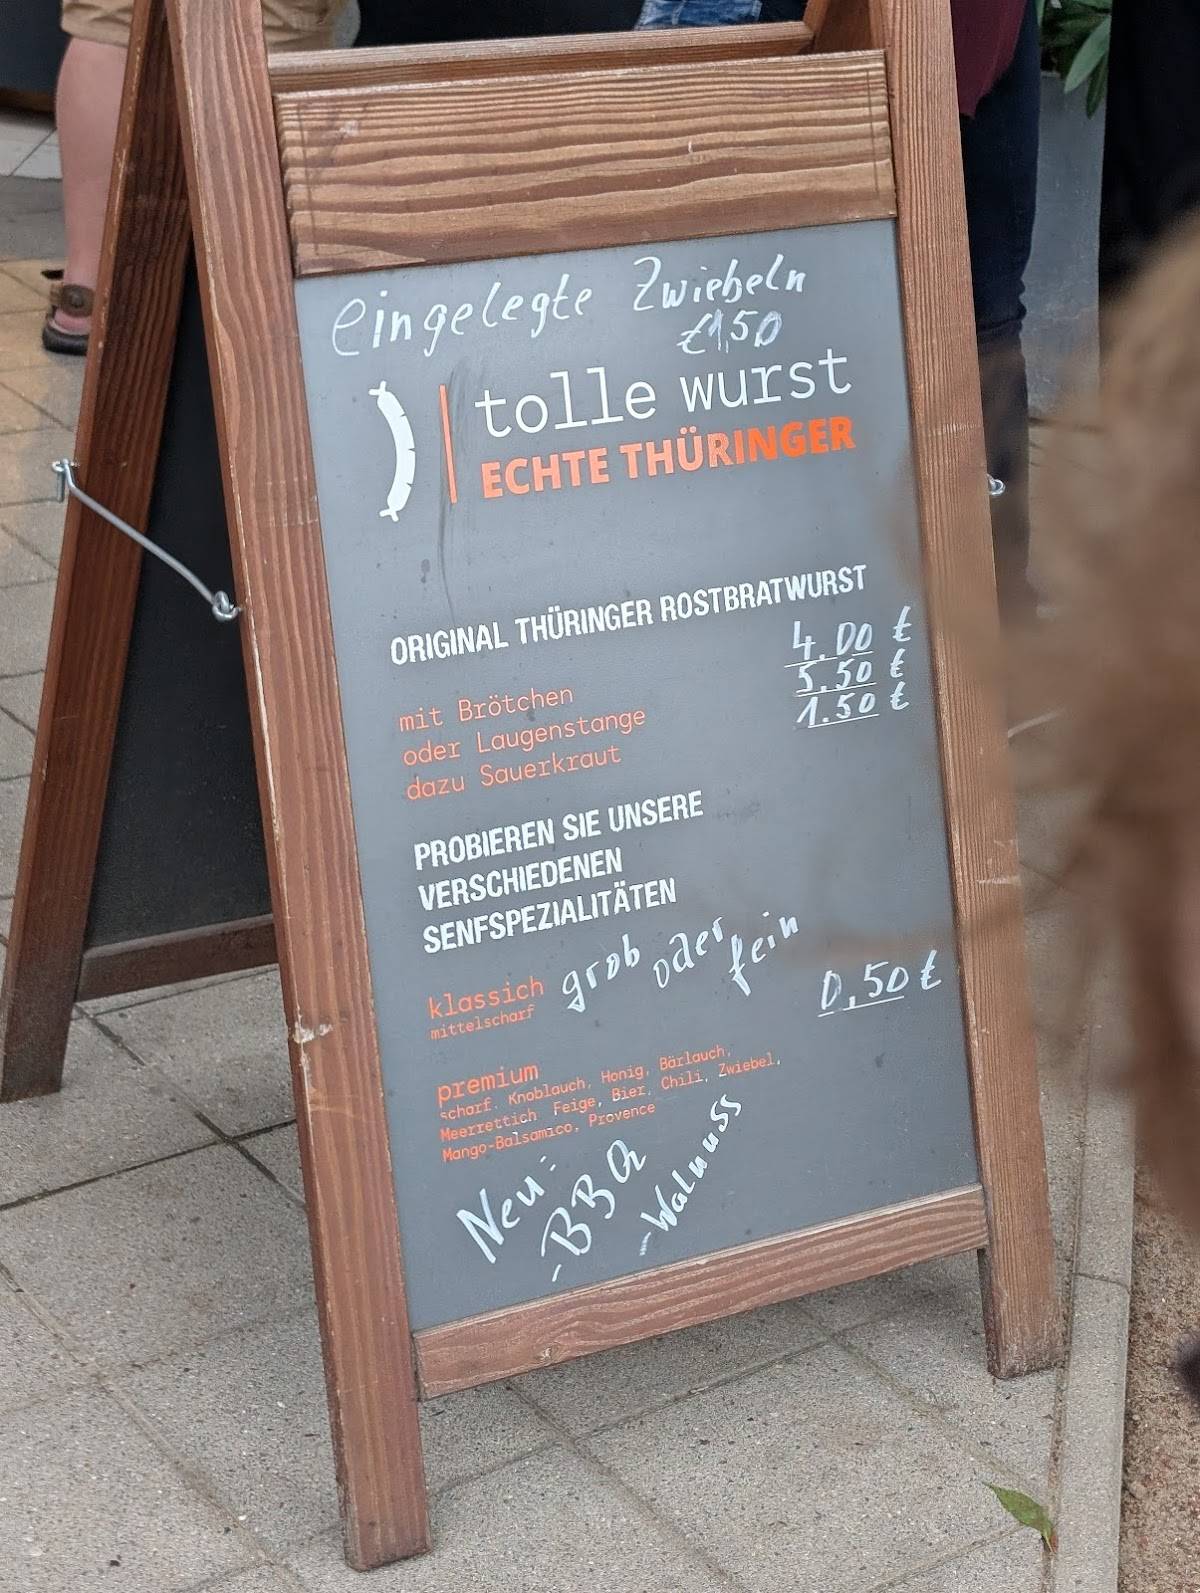 eingelegte Zwiebeln
€1,50
tolle wurst
ECHTE THÜRINGER
ORIGINAL THÜRINGER ROSTBRATWURST
mit Brötchen 4.00 €
oder Laugenstange 5.50 €
dazu Sauerkraut 1.50 €
PROBIEREN SIE UNSERE
VERSCHIEDENEN
SENFSPEZIALITÄTEN
klassich grob oder fein
mittelscharf
0,50 €
premium
scharf, Knoblauch, Honig, Bärlauch,
Meerrettich, Feige, Bier, Chili, Zwiebel,
Mango-Balsamico, Provence
Neu:
-BBQ
-Walnuss